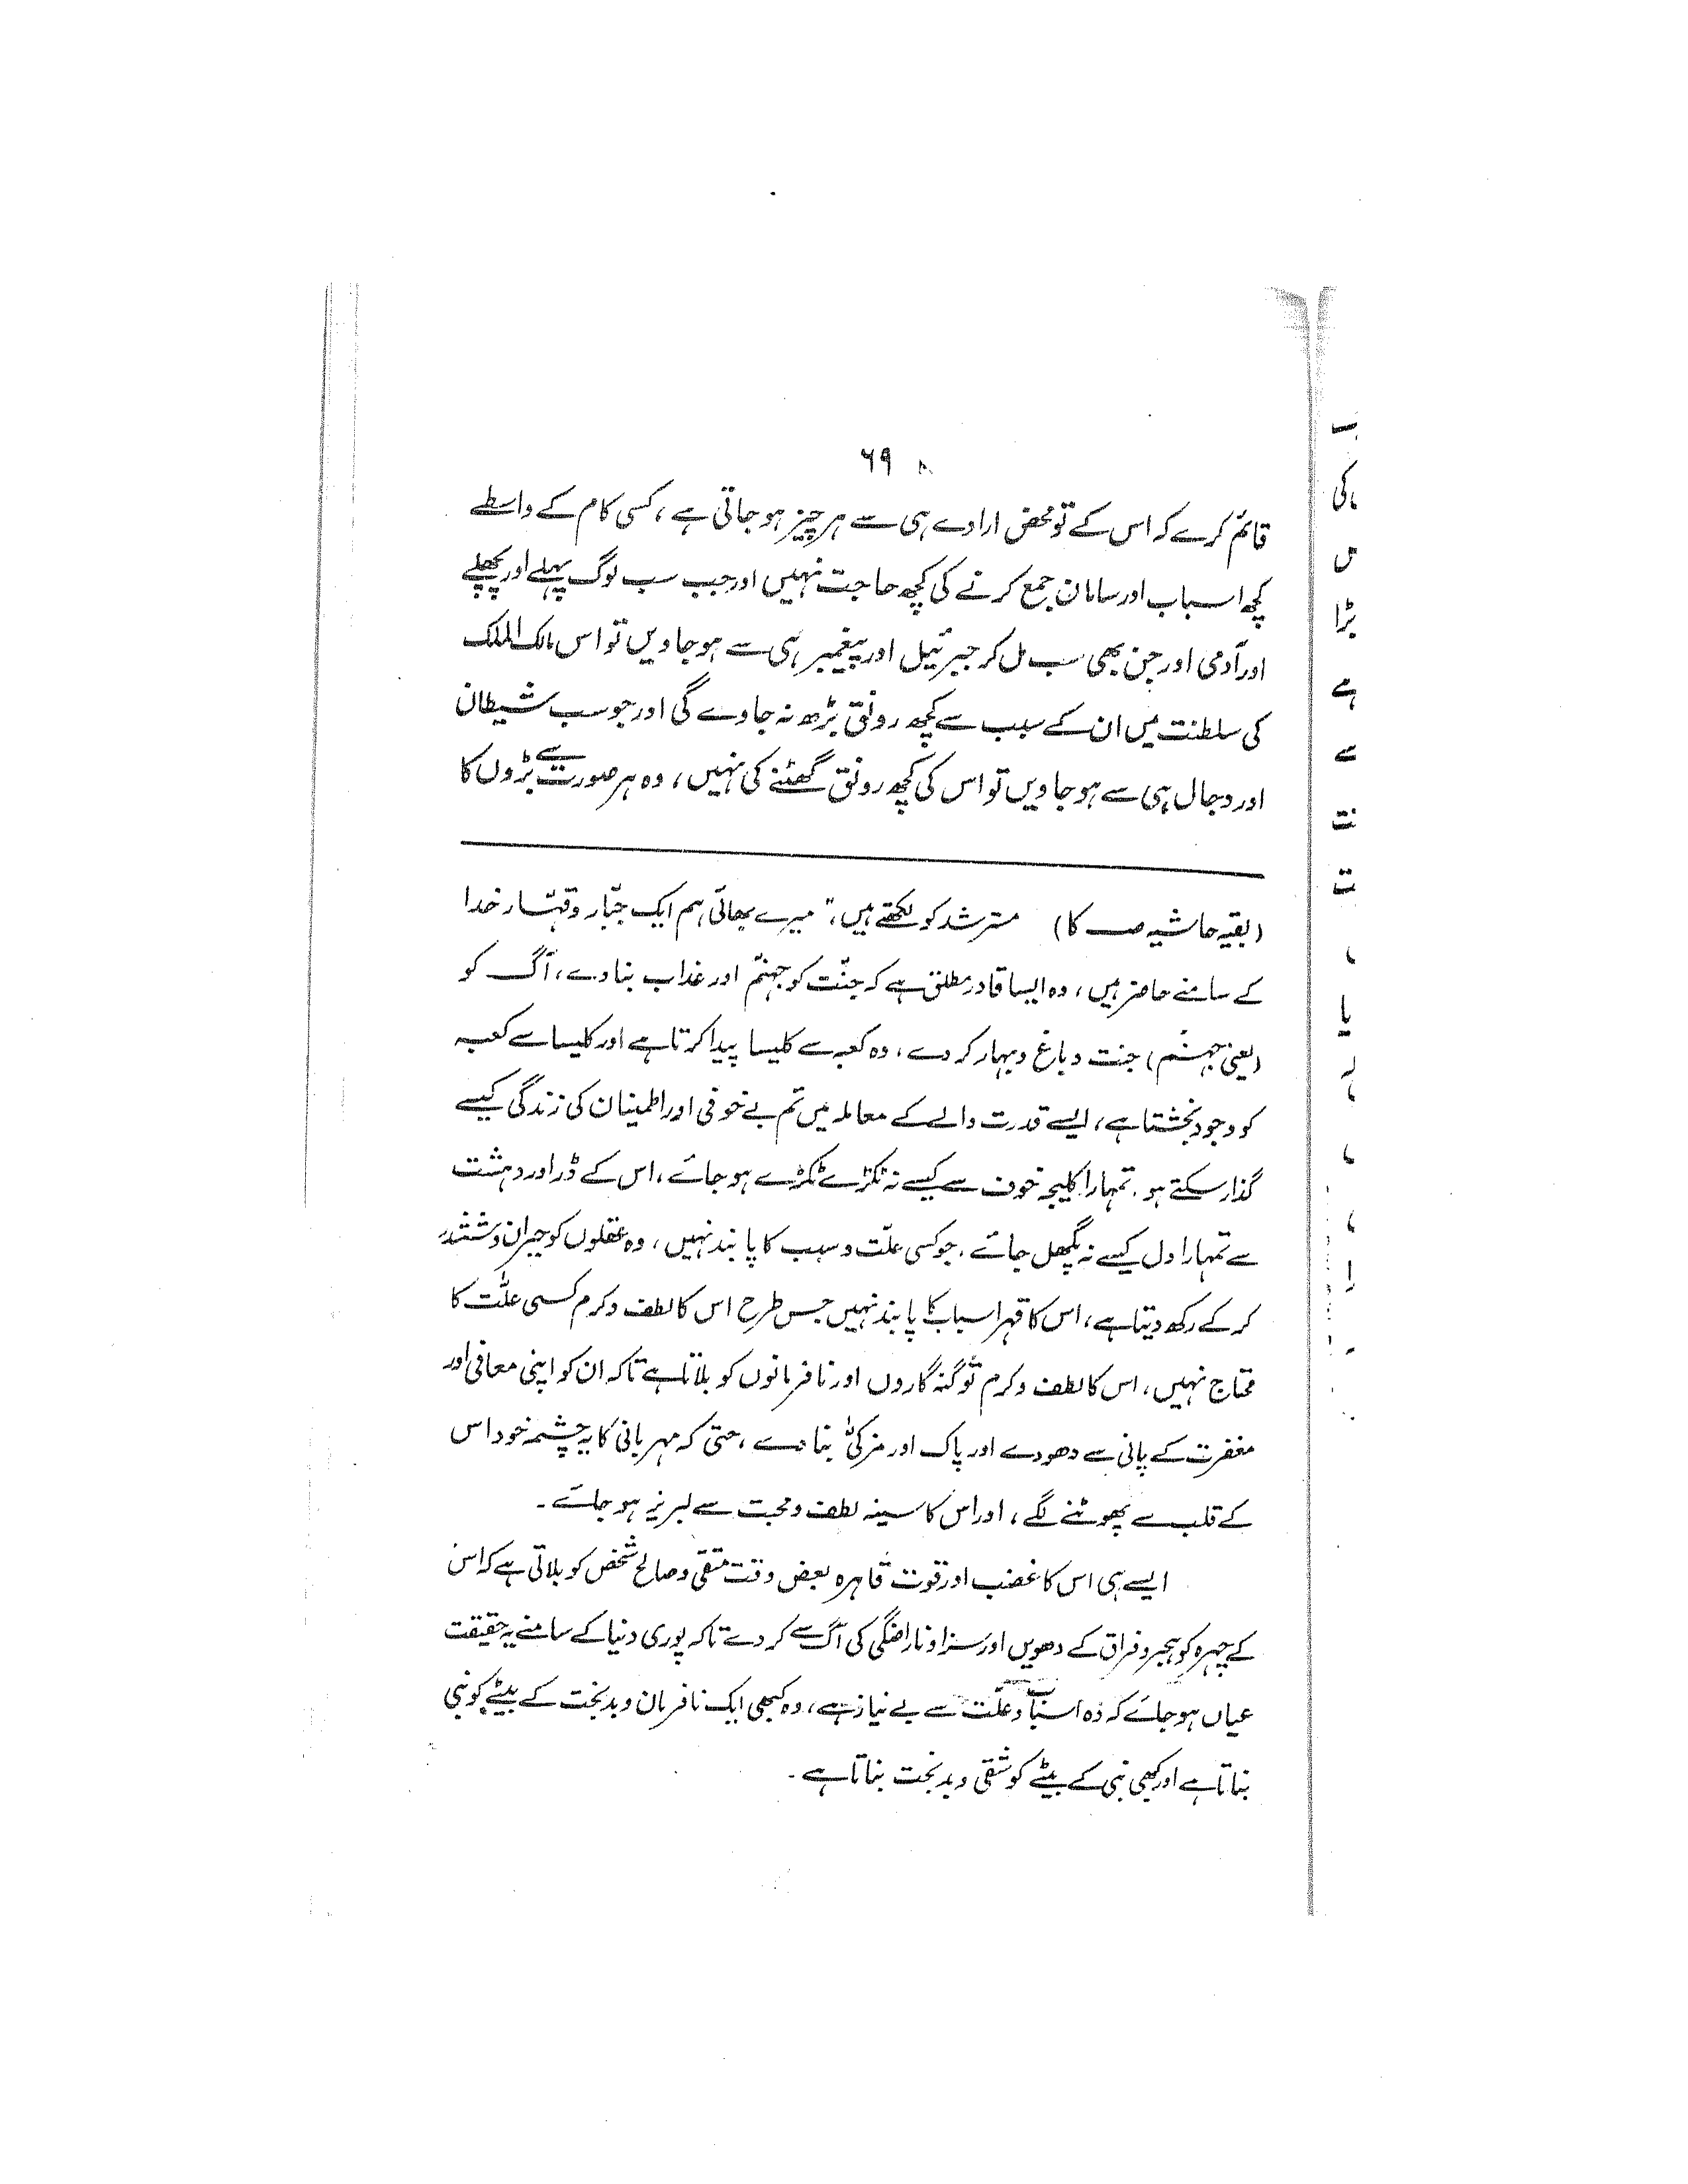 ۶۹
قائم کرے کہ اس کے تو محض ارادے ہی سے ہر چیز ہو جاتی ہے، کسی کام کے واسطے
کچھ اسباب اور سامان جمع کرنے کی کچھ حاجت نہیں اور جب سب لوگ پہلے اور پچھلے
اور آدمی اور جن بھی سب مل کر جبرئیل اور پیغمبر ہی سے ہو جاویں تو اس مالک الملک
کی سلطنت میں ان کے سبب سے کچھ رونق بڑھ نہ جاوے گی اور جو سب شیطان
اور دجال ہی سے ہو جاویں تو اس کی کچھ رونق گھٹنے کی نہیں، وہ ہر صورت سے بڑوں کا
(بقیہ حاشیہ صـ کا) مسترشد کو لکھتے ہیں، " میرے بھائی ہم ایک جبّار و قہّار خدا
کے سامنے حاضر ہیں، وہ ایسا قادر مطلق ہے کہ جنّت کو جہنّم اور عذاب بنا دے، آگ کو
(یعنی جہنّم) جنت و باغ و بہار کر دے، وہ کعبہ سے کلیسا پیدا کرتا ہے اور کلیسا سے کعبہ
کو وجود بخشتا ہے، ایسے قدرت والے کے معاملہ میں تم بے خوفی اور اطمینان کی زندگی کیسے
گذار سکتے ہو۔ تمہارا کلیجہ خوف سے کیسے نہ ٹکڑے ٹکڑے ہو جائے، اس کے ڈر اور دہشت
سے تمہارا دل کیسے نہ پگھل جائے، جو کسی علّت و سبب کا پابند نہیں، وہ عقلوں کو حیران و ششدر
کر کے رکھ دیتا ہے، اس کا قہر اسباب کا پابند نہیں جس طرح اس کا لطف و کرم کسی علّت کا
محتاج نہیں، اس کا لطف و کرم تو گنہ گاروں اور نافرمانوں کو بلاتا ہے تاکہ ان کو اپنی معافی اور
مغفرت کے پانی سے دھو دے اور پاک اور مزکیٰ بنا دے، حتی کہ مہربانی کا یہ چشمہ خود اس
کے قلب سے پھوٹنے لگے، اور اس کا سینہ لطف و محبت سے لبریز ہو جائے۔
ایسے ہی اس کا غضب اور قوت قاہرہ بعض وقت متقی و صالح شخص کو بلاتی ہے کہ اس
کے چہرہ کو ہجر و فراق کے دھویں اور سزا و ناراضگی کی آگ سے کر دے تاکہ پوری دنیا کے سامنے یہ حقیقت
عیاں ہو جائے کہ وہ اسباب و علّت سے بے نیاز ہے، وہ کبھی ایک نافرمان و بدبخت کے بیٹے کو نبی
بناتا ہے اور کبھی نبی کے بیٹے کو شقی و بدبخت بناتا ہے۔